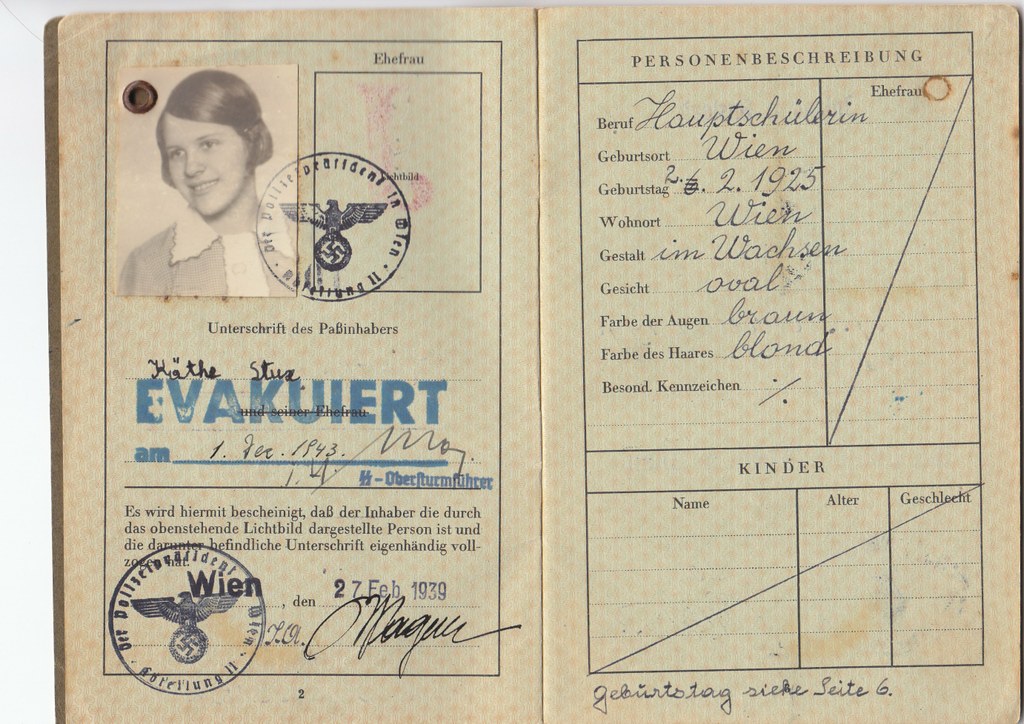 Ehefrau
Lichtbild
Der Polizeipräsident in Wien
Abteilung II
Unterschrift des Paßinhabers
Käthe Stux
EVAKUIERT
und seiner Ehefrau
am 1. Dez. 1943.
SS-Obersturmführer
Es wird hiermit bescheinigt, daß der Inhaber die durch
das obenstehende Lichtbild dargestellte Person ist und
die darunter befindliche Unterschrift eigenhändig voll-
zogen hat.
Der Polizeipräsident Wien
Abteilung II
Wien, den 27 Feb. 1939
I.A. Wagner
2
PERSONENBESCHREIBUNG
Ehefrau
Beruf Hauptschülerin
Geburtsort Wien
Geburtstag 2. 2. 1925
Wohnort Wien
Gestalt im Wachsen
Gesicht oval
Farbe der Augen braun
Farbe des Haares blond
Besond. Kennzeichen ./.
KINDER
Name Alter Geschlecht
Geburtstag siehe Seite 6.